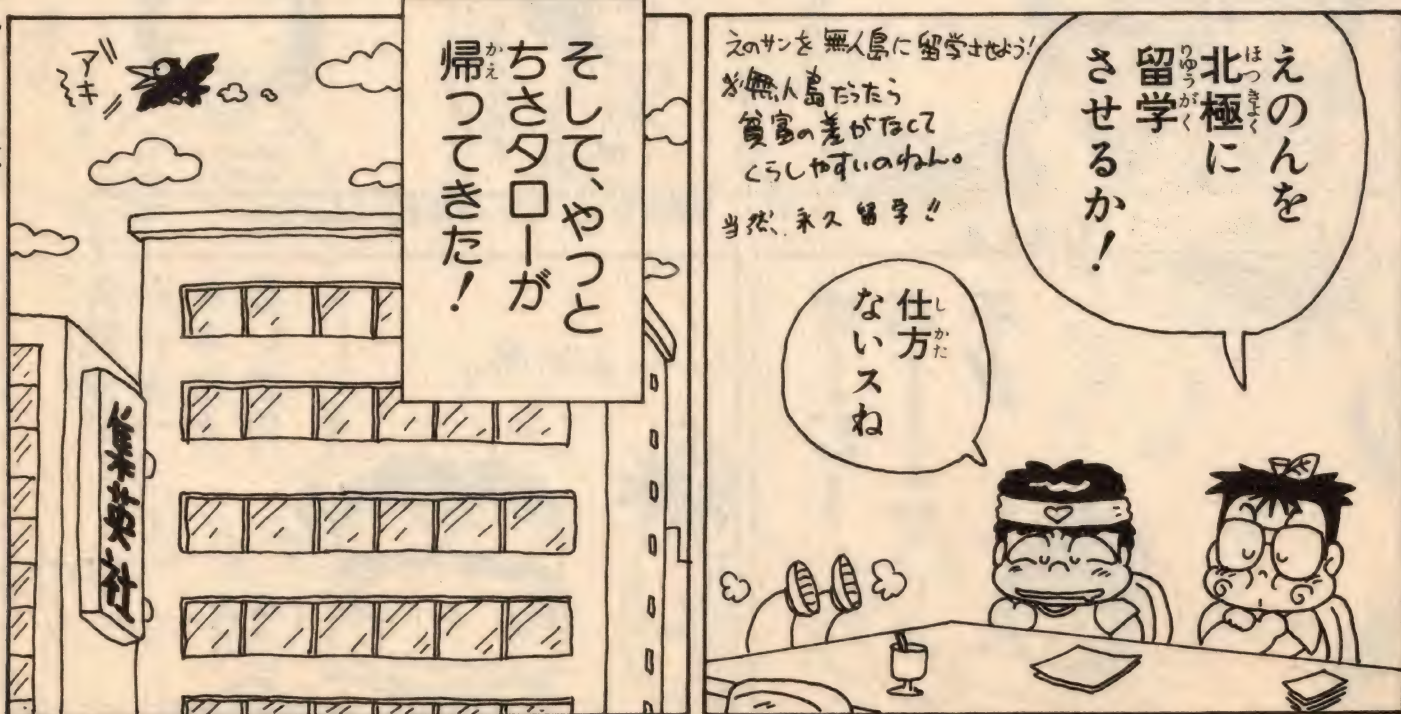 えのんを
北極に
留学
させるか!
ほっきょく
りゅうがく
えのサンを 無人島に 留学させよう!
※無人島だったら
貧富の差がなくて
くらしやすいのねん。
当然、永久留学!!
仕方
ないスね
しかた
そして、やっと
ちさタローが
帰ってきた!
かえ
アキ